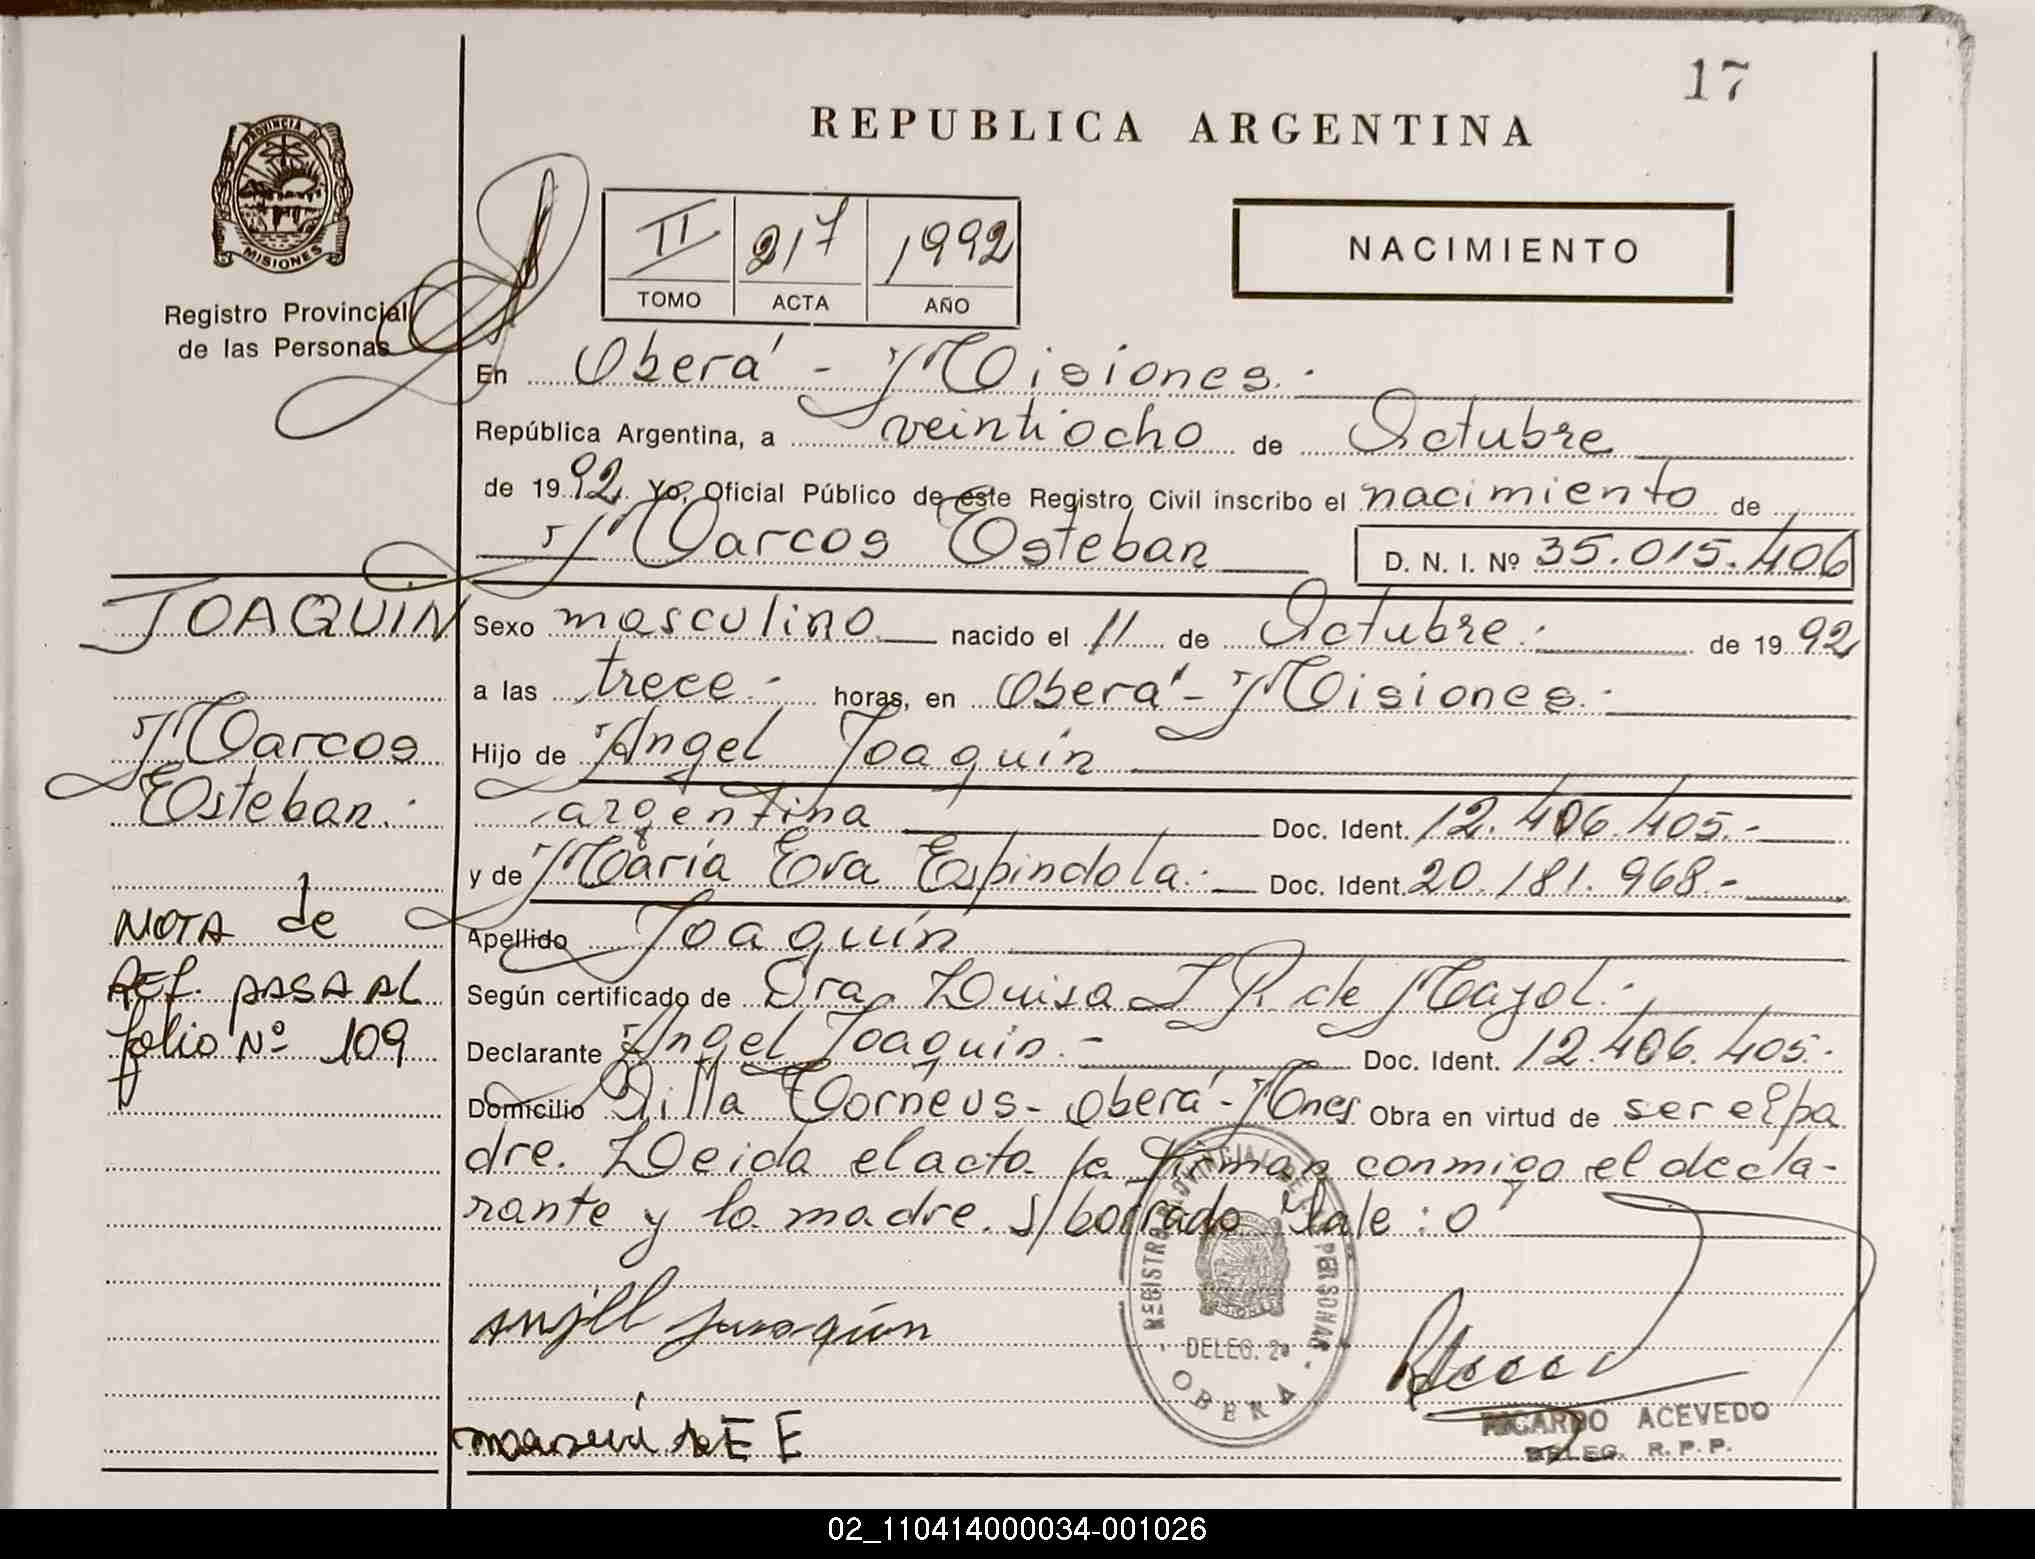 17
REPUBLICA ARGENTINA
PROVINCIA DE MISIONES
Registro Provincial
de las Personas
II 217 1992
TOMO ACTA AÑO
NACIMIENTO
En Oberá - Misiones.-
República Argentina, a veintiocho de Octubre
de 1992. Yo, Oficial Público de este Registro Civil inscribo el nacimiento de
Marcos Esteban D. N. I. Nº 35.015.406
JOAQUIN
Marcos
Esteban.-
NOTA de
REf. PASA AL
folio Nº 109
Sexo masculino nacido el 11 de Octubre.- de 1992
a las trece.- horas, en Oberá - Misiones.-
Hijo de Angel Joaquin
argentina Doc. Ident. 12.406.405.-
y de María Eva Espindola.- Doc. Ident. 20.181.968.-
Apellido Joaquín
Según certificado de Dra. Luisa I P. de Mayol.-
Declarante Angel Joaquin.- Doc. Ident. 12.406.405.-
Domicilio Villa Torneus - Oberá - Mnes Obra en virtud de ser el pa
dre. Leida el acta la firman conmigo el decla-
rante y la madre. S/borrado Vale: o
REGISTRO PROVINCIAL DE LAS PERSONAS
DELEG. 2a
OBERA
RICARDO ACEVEDO
DELEG. R. P. P.
02_110414000034-001026